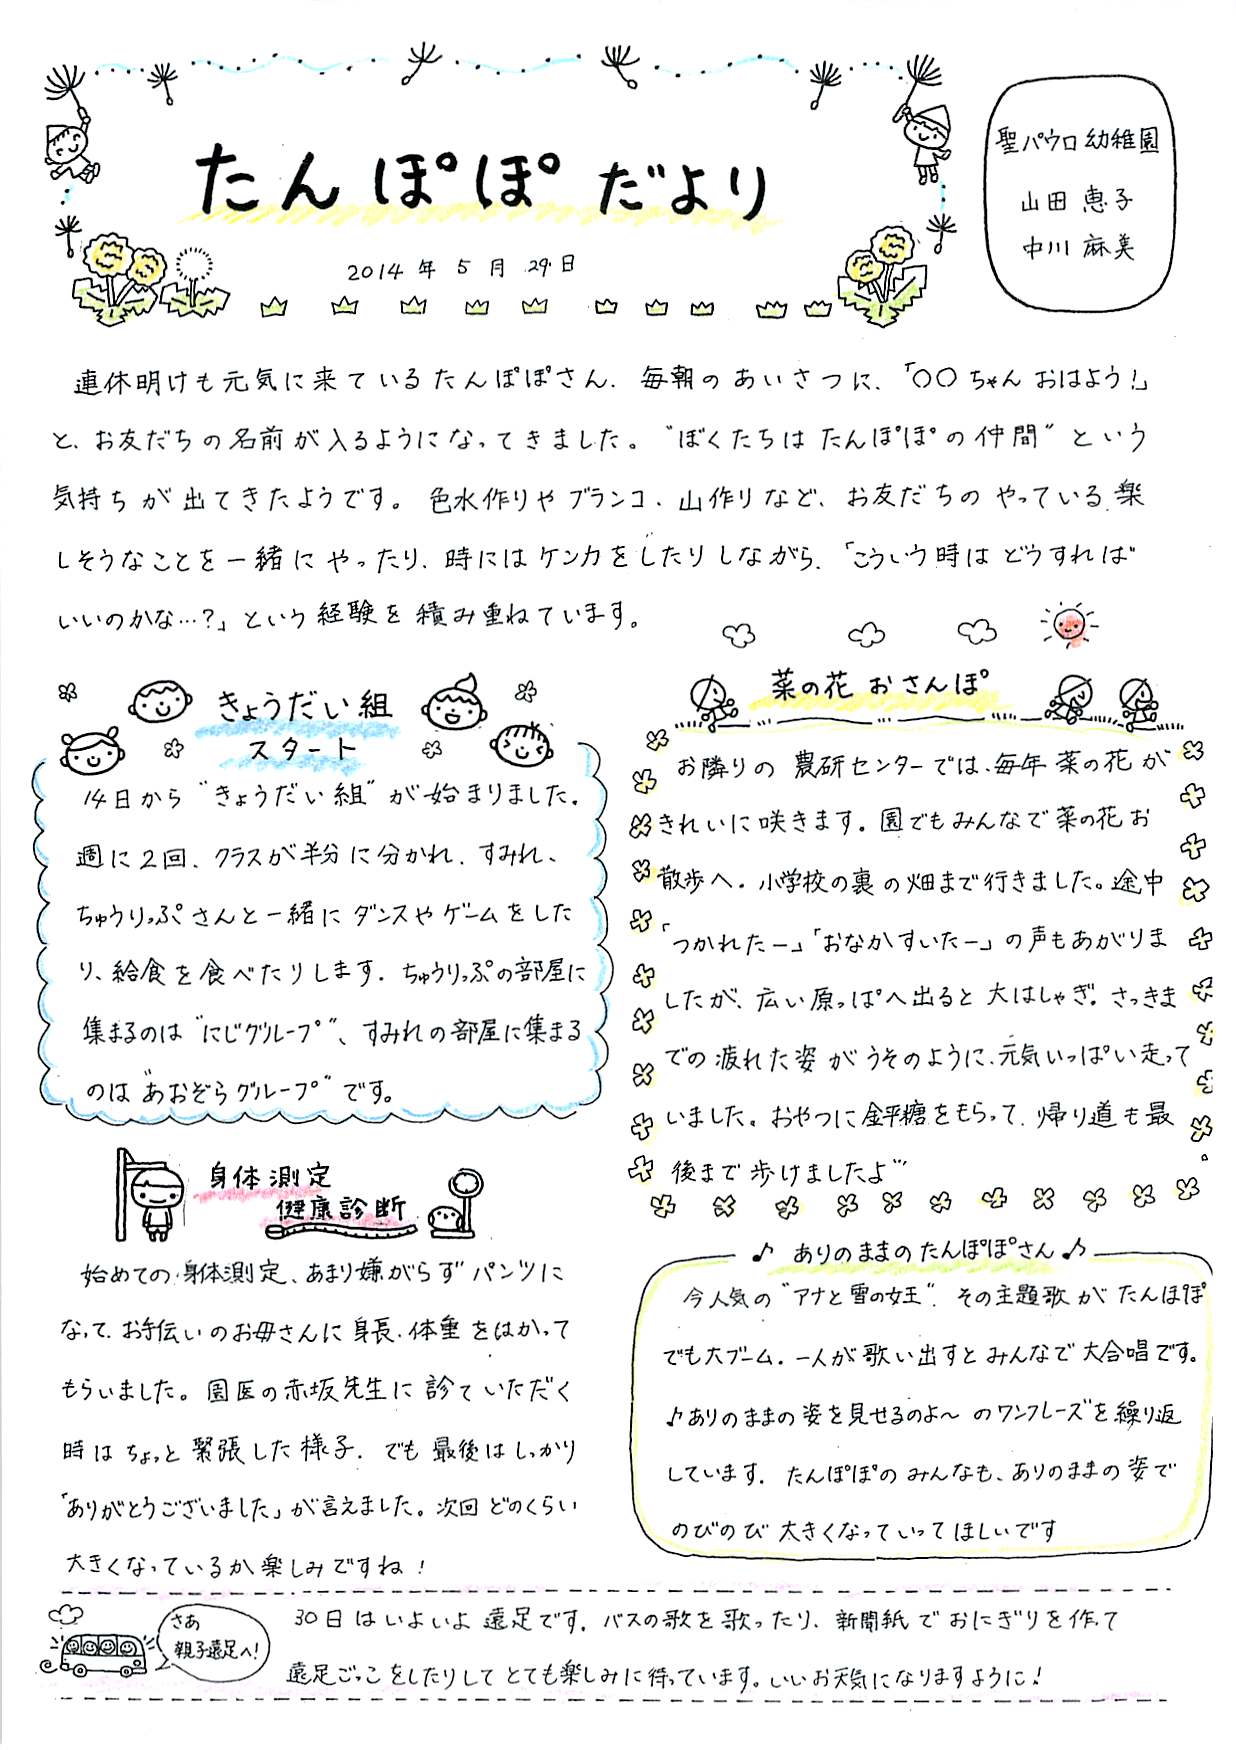 たんぽぽだより
2014年5月29日
聖パウロ幼稚園
山田恵子
中川麻美
連休明けも元気に来ているたんぽぽさん．毎朝のあいさつに、「〇〇ちゃんおはよう！」
と、お友だちの名前が入るようになってきました。"ぼくたちはたんぽぽの仲間"という
気持ちが出てきたようです。色水作りやブランコ、山作りなど、お友だちのやっている、楽
しそうなことを一緒にやったり、時にはケンカをしたりしながら、「こういう時はどうすれば
いいのかな…？」という経験を積み重ねています。
きょうだい組
スタート
14日から"きょうだい組"が始まりました。
週に2回、クラスが半分に分かれ、すみれ、
ちゅうりっぷさんと一緒にダンスやゲームをした
り、給食を食べたりします．ちゅうりっぷの部屋に
集まるのは"にじグループ"、すみれの部屋に集まる
のは"あおぞらグループ"です。
身体測定
健康診断
始めての身体測定、あまり嫌がらずパンツに
なって、お手伝いのお母さんに身長、体重をはかって
もらいました。園医の赤坂先生に診ていただく
時はちょっと緊張した様子．でも最後はしっかり
「ありがとうございました」が言えました。次回どのくらい
大きくなっているか楽しみですね！
菜の花おさんぽ
お隣りの農研センターでは、毎年菜の花が
きれいに咲きます。園でもみんなで菜の花お
散歩へ．小学校の裏の畑まで行きました。途中
「つかれたー」「おなかすいたー」の声もあがりま
したが、広い原っぱへ出ると大はしゃぎ。さっきま
での疲れた姿がうそのように、元気いっぱい走って
いました。おやつに金平糖をもらって、帰り道も最
後まで歩けましたよ
♪ありのままのたんぽぽさん♪
今人気の"アナと雪の女王"．その主題歌がたんぽぽ
でも大ブーム．一人が歌い出すとみんなで大合唱です。
♪ありのままの姿を見せるのよ〜のワンフレーズを繰り返
しています．たんぽぽのみんなも、ありのままの姿で
のびのび大きくなっていってほしいです
さあ
親子遠足へ！
30日はいよいよ遠足です．バスの歌を歌ったり、新聞紙でおにぎりを作って
遠足ごっこをしたりしてとても楽しみに待っています。いいお天気になりますように！